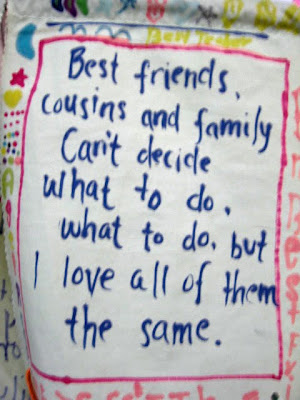 Best friends,
cousins and family
Can't decide
what to do,
what to do, but
I love all of them
the same.